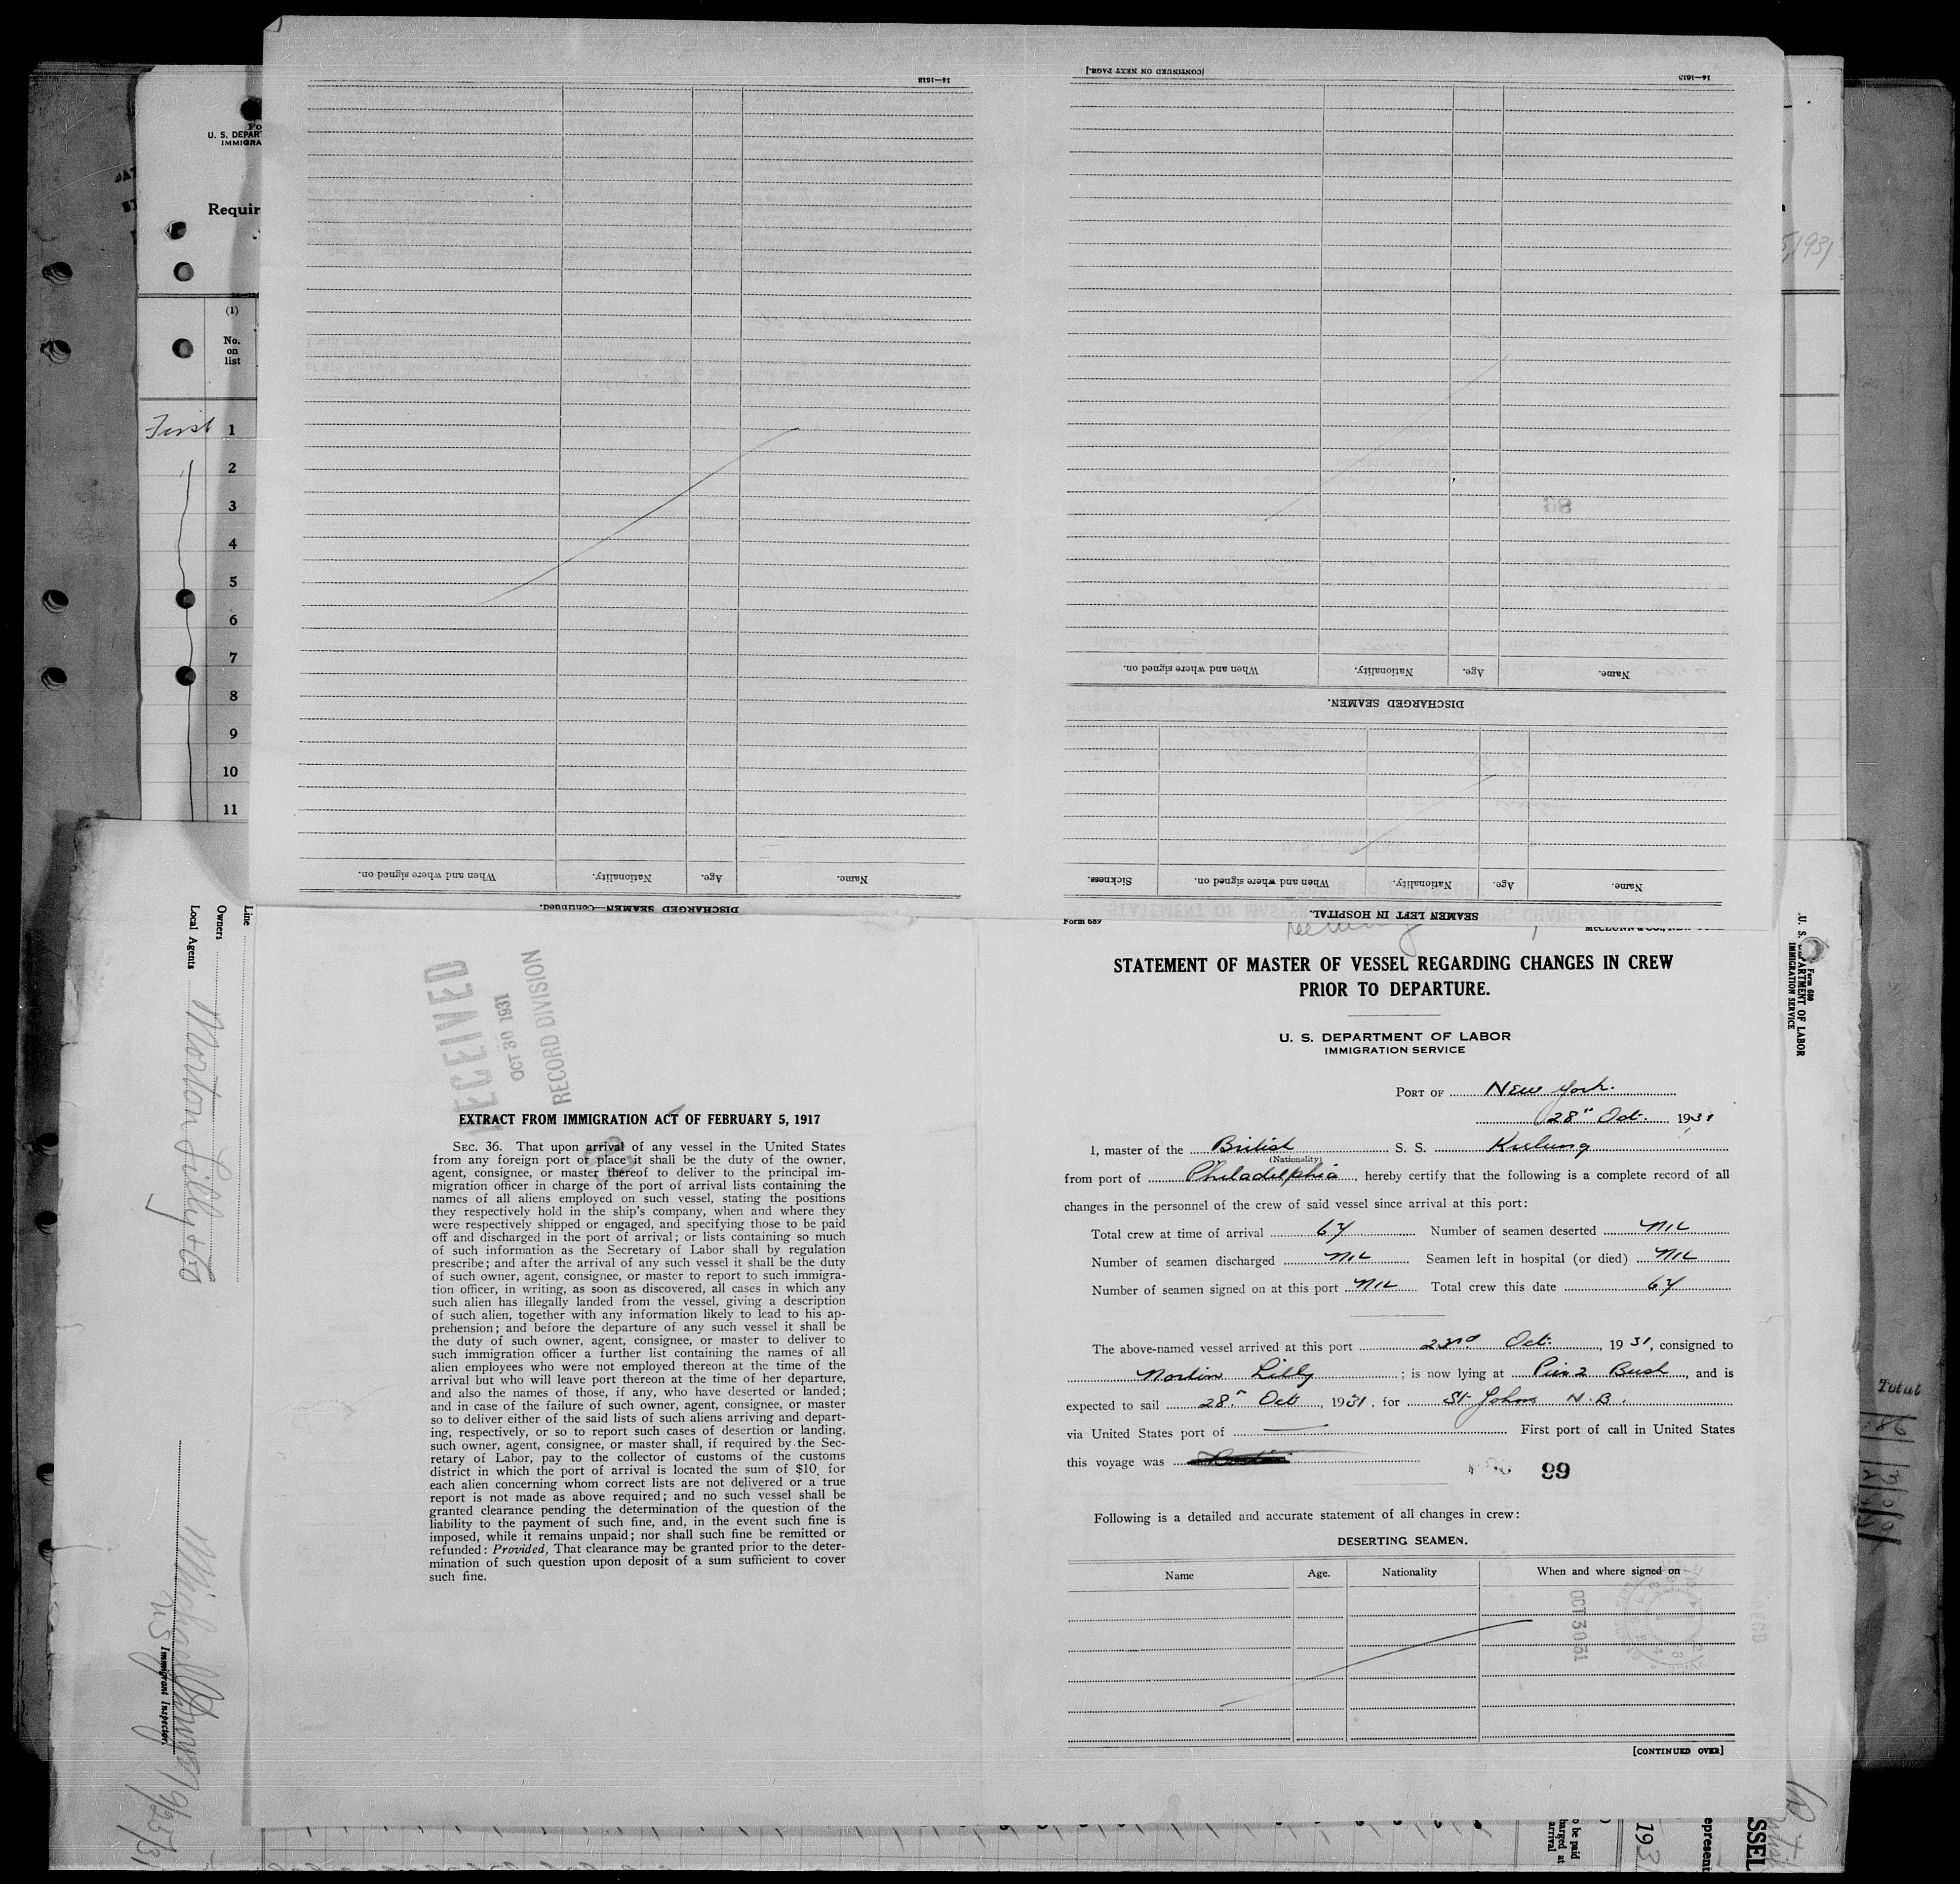 14—1613
When and where signed on.
Nationality.
Age.
Name.
DISCHARGED SEAMEN—Continued.
[CONTINUED ON NEXT PAGE.]
14—1613
When and where signed on.
Nationality.
Age.
Name.
DISCHARGED SEAMEN.
Sickness.
When and where signed on.
Nationality.
Age.
Name.
SEAMEN LEFT IN HOSPITAL.
U. S. DEPAR
IMMIGRA
Requir
(1)
No.
on
list
First 1
2
3
4
5
6
7
8
9
10
11
Line
Owners
Local Agents Morton Lilly & Co
U.S. Immigrant Inspector.
RECEIVED
OCT 30 1931
RECORD DIVISION
EXTRACT FROM IMMIGRATION ACT OF FEBRUARY 5, 1917
SEC. 36. That upon arrival of any vessel in the United States
from any foreign port or place it shall be the duty of the owner,
agent, consignee, or master thereof to deliver to the principal im-
migration officer in charge of the port of arrival lists containing the
names of all aliens employed on such vessel, stating the positions
they respectively hold in the ship's company, when and where they
were respectively shipped or engaged, and specifying those to be paid
off and discharged in the port of arrival; or lists containing so much
of such information as the Secretary of Labor shall by regulation
prescribe; and after the arrival of any such vessel it shall be the duty
of such owner, agent, consignee, or master to report to such immigra-
tion officer, in writing, as soon as discovered, all cases in which any
such alien has illegally landed from the vessel, giving a description
of such alien, together with any information likely to lead to his ap-
prehension; and before the departure of any such vessel it shall be
the duty of such owner, agent, consignee, or master to deliver to
such immigration officer a further list containing the names of all
alien employees who were not employed thereon at the time of the
arrival but who will leave port thereon at the time of her departure,
and also the names of those, if any, who have deserted or landed;
and in case of the failure of such owner, agent, consignee, or master
so to deliver either of the said lists of such aliens arriving and depart-
ing, respectively, or so to report such cases of desertion or landing,
such owner, agent, consignee, or master shall, if required by the Sec-
retary of Labor, pay to the collector of customs of the customs
district in which the port of arrival is located the sum of $10 for
each alien concerning whom correct lists are not delivered or a true
report is not made as above required; and no such vessel shall be
granted clearance pending the determination of the question of the
liability to the payment of such fine, and, in the event such fine is
imposed, while it remains unpaid; nor shall such fine be remitted or
refunded: Provided, That clearance may be granted prior to the deter-
mination of such question upon deposit of a sum sufficient to cover
such fine.
Form 689
STATEMENT OF MASTER OF VESSEL REGARDING CHANGES IN CREW
PRIOR TO DEPARTURE.
U. S. DEPARTMENT OF LABOR
IMMIGRATION SERVICE
PORT OF New York.
28" Oct. 1931
I, master of the British S. S. Keelung
(Nationality)
from port of Philadelphia, hereby certify that the following is a complete record of all
changes in the personnel of the crew of said vessel since arrival at this port:
Total crew at time of arrival 64 Number of seamen deserted NIL
Number of seamen discharged NIL Seamen left in hospital (or died) NIL
Number of seamen signed on at this port NIL Total crew this date 64
The above-named vessel arrived at this port 23rd Oct., 1931, consigned to
Norton Lilly; is now lying at Pier 2 Bush, and is
expected to sail 28" Oct, 1931, for St Johns N.B.
via United States port of — First port of call in United States
this voyage was
99
Following is a detailed and accurate statement of all changes in crew:
DESERTING SEAMEN.
Name Age. Nationality When and where signed on
OCT 30 31
[CONTINUED OVER]
Form 680
U. S. DEPARTMENT OF LABOR
IMMIGRATION SERVICE
Total
1931